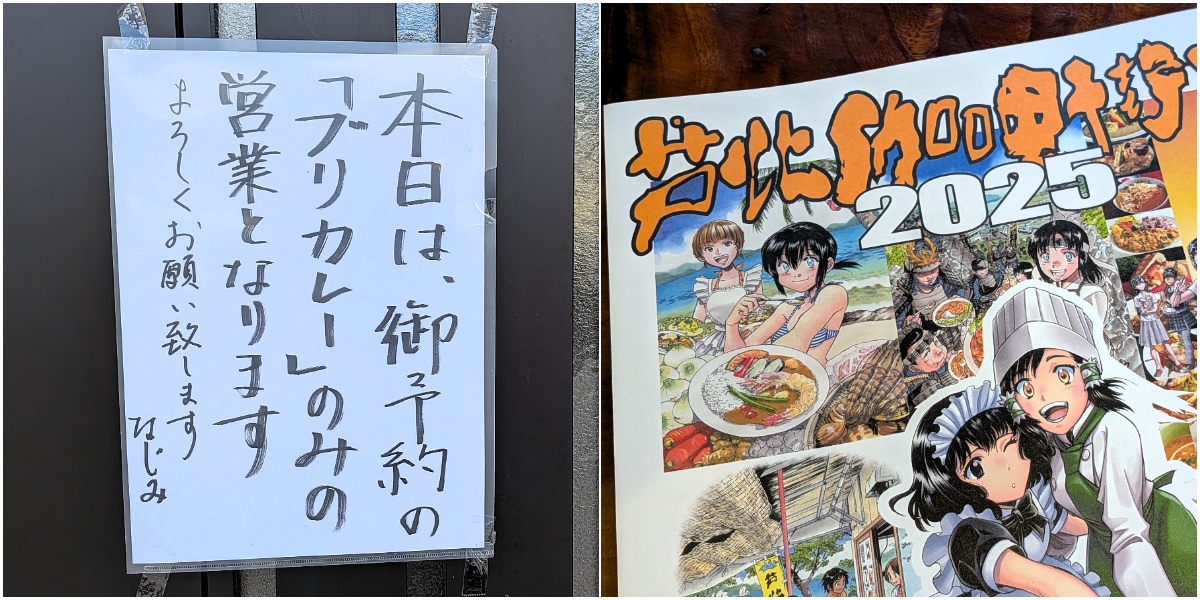 本日は、御予約の
「ブリカレー」のみの
営業となります
よろしくお願い致します
なじみ
芦北
2025